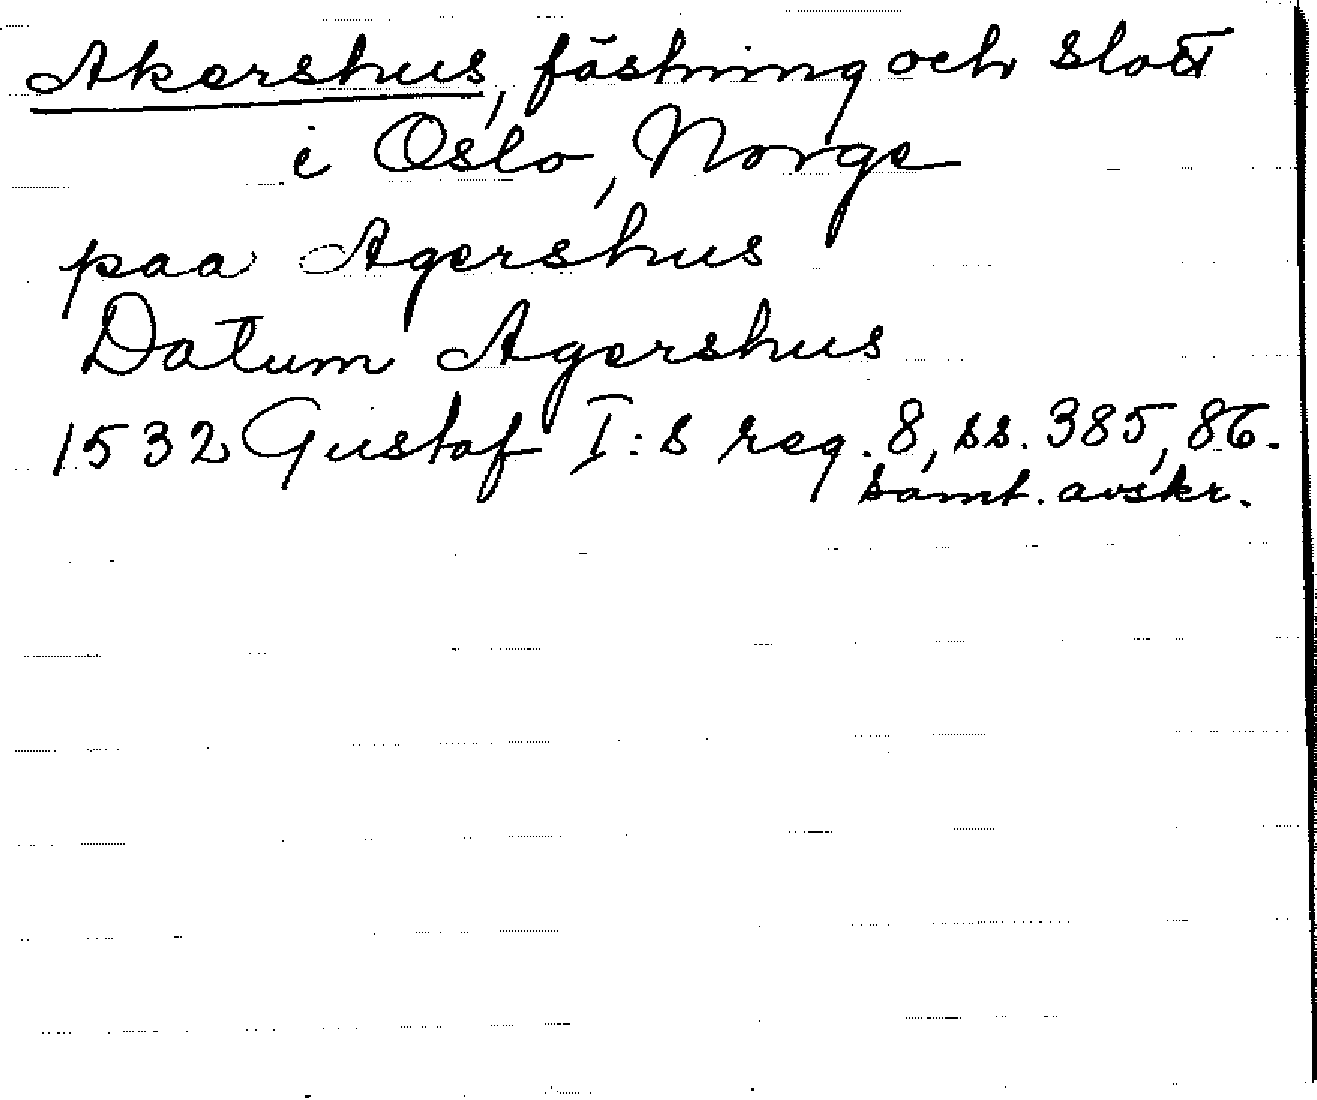 Akershus, fästning och slott
i Oslo, Norge
paa Agershus
Datum Agershus
1532 Gustaf I:s reg. 8, ss. 385, 86.
samt. avskr.